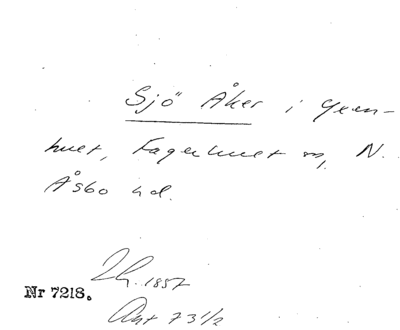 Sjö Åker i Gren-
huet, Fagerhuet m, N.
Åsbo hd.
1857
Nr 7218.
Akt 73 1/2